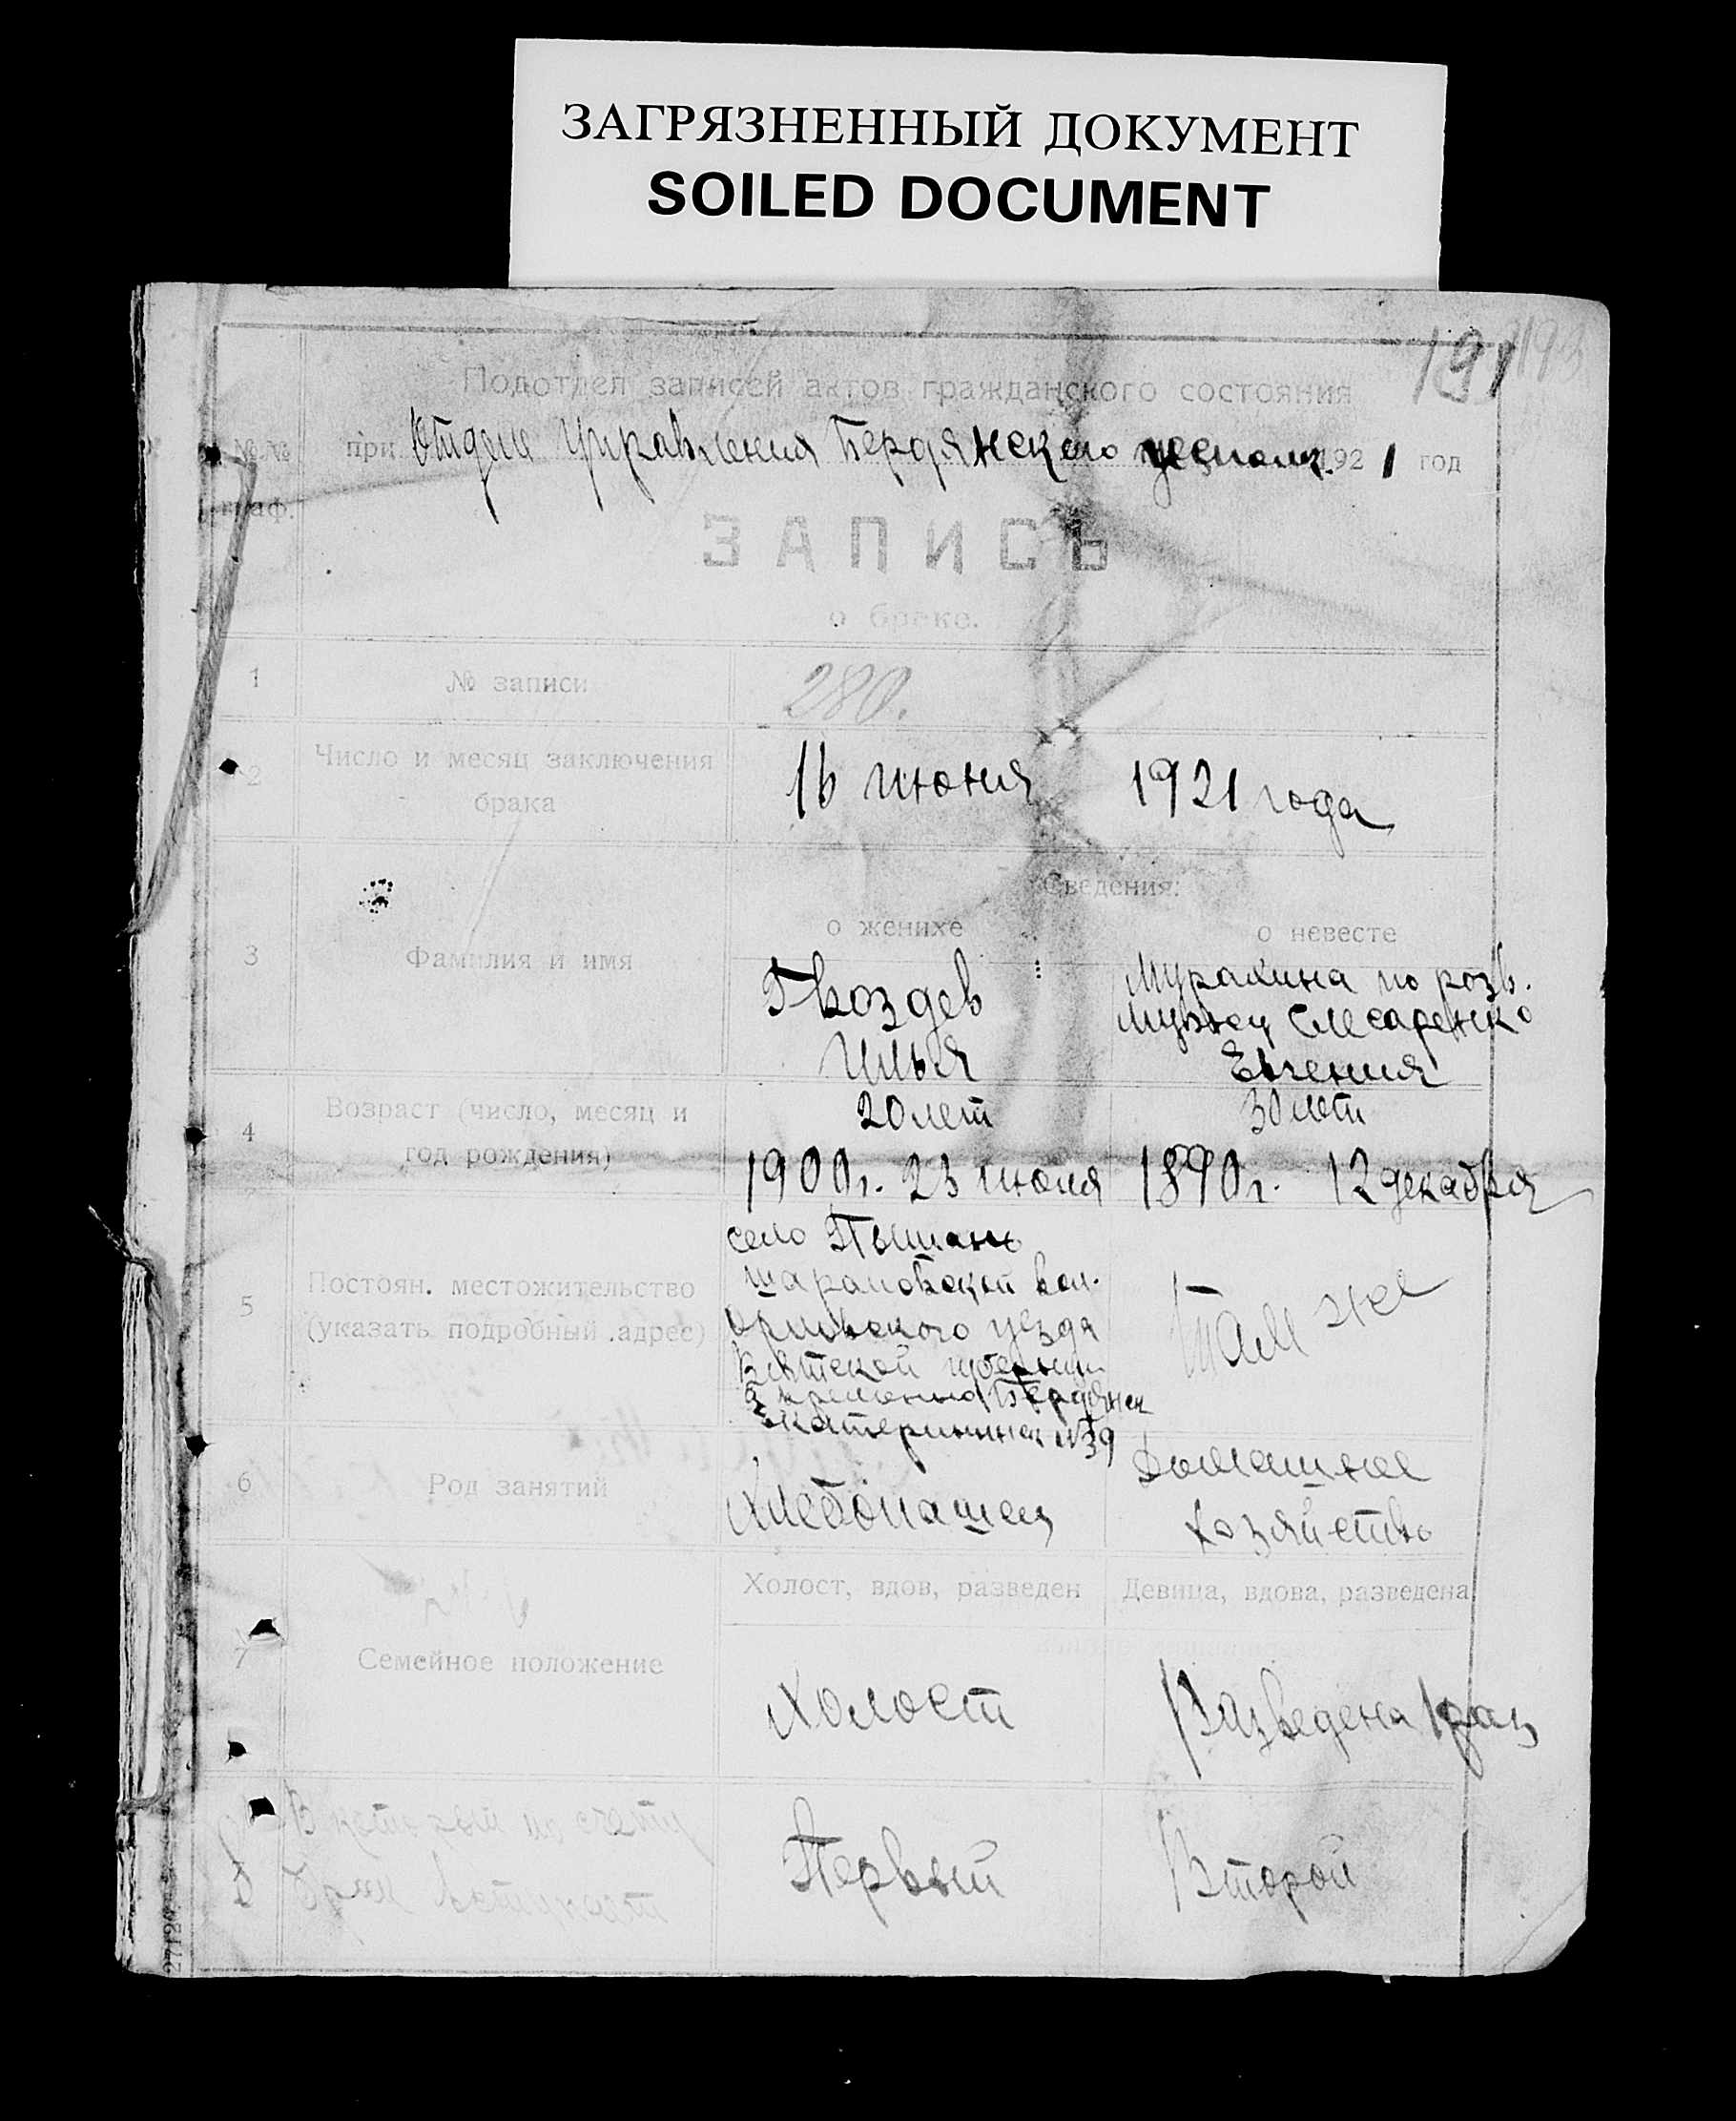 ЗАГРЯЗНЕННЫЙ ДОКУМЕНТ
SOILED DOCUMENT
191 193
Подотдел записей актов гражданского состояния
№№ при Отделе Управления Бердянского уисполк. 1921 год
граф.
ЗАПИСЬ
о браке.
1 № записи 280.
2 Число и месяц заключения брака
16 июня 1921 года
Сведения:
о женихе о невесте
3 Фамилия и имя
Гвоздев
Илья
по розв.
мужец Слесаренко
Евгения
4 Возраст (число, месяц и год рождения)
20 лет 30 лет
1900г. 23 июля 1890г. 12 декабря
5 Постоян. местожительство
(указать подробный адрес)
село
вол.
Орловского уезда
Вятской губернии
временно Бердянск
Екатерининск №39
Там же
6 Род занятий
Хлебопашец
Домашнее
хозяйство
7 Семейное положение
Холост, вдов, разведен Девица, вдова, разведена
Холост Разведена 1 раз
8 В который по счету
брак вступает
Первый Второй
2712